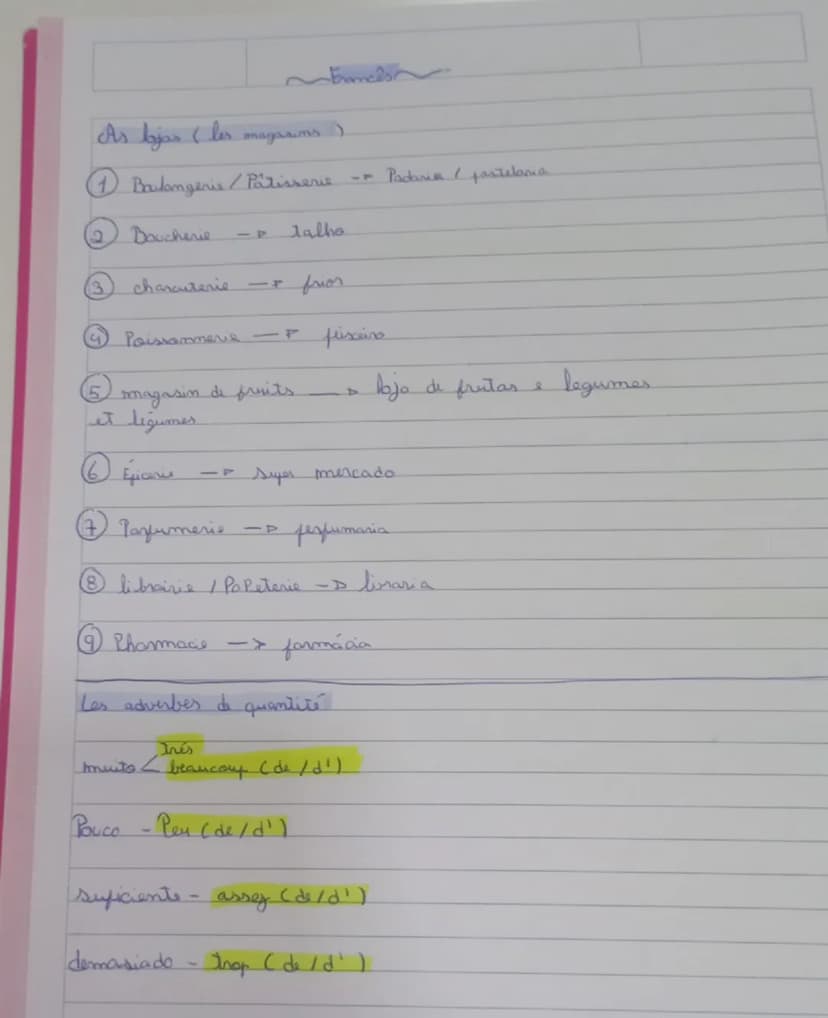 Francês
As lojas (les magasins)
1 Boulangerie / Pâtisserie → Padaria / pastelaria
2 Boucherie → talho
3 charcuterie → frios
4 Poissonnerie → peixeiro
5 magasin de fruits → loja de frutas e legumes
et légumes
6 Épicerie → super mercado
7 Parfumerie → perfumaria
8 librairie / Papeterie → livraria
9 Pharmacie → farmácia
Les adverbes de quantité
très
muito < beaucoup (de / d')
Pouco - Peu (de / d')
suficiente - assez (de / d')
demasiado - trop (de / d')